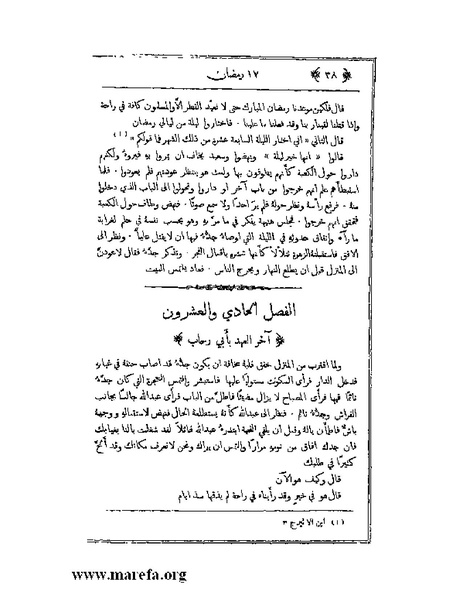 ﴿ ٣٨ ﴾ ١٧ رمضان
قال فليكن موعدنا رمضان المبارك حتى لا نعيّد الفطر الاّ والمسلمون كافة في راحة
واذا قتلنا فليثأر بنا وقد فعلنا ما علينا . فاختاروا ليلة من ليالي رمضان
قال الثاني « اني اختار الليلة السابعة عشرة من ذلك الشهر فما قولكم » (١)
قالوا « انها خير ليلة » ونهضوا وسعيد يخاف ان يمروا به فيروه ولكنهم
داروا حول الكعبة كأنهم يطوفون بها ولبث هو ينتظر عودتهم فلم يعودوا . فلما
استبطأهم علم انهم خرجوا من باب آخر او داروا وتحولوا الى الباب الذي دخلوا
منه . فرفع رأسه ونظر حوله فلم ير احداً ولا سمع صوتاً . فنهض وطاف حول الكعبة
فتحقق انهم خرجوا . فجلس هنيهة يفكر في ما مرّ به وهو يحسب نفسه في حلم لغرابة
ما رآه واتفاق حدوثه في الليلة التي اوصاه جدّه فيها ان لا يقتل علياً . ونظر الى
الافق فاستقبلته الزهرة تتلألأ كأنها تبشره باقبال الفجر . وتذكر جدّه فقال لاعودنّ
الى المنزل قبل ان يطلع النهار ويخرج الناس . فعاد يلتمس البيت
الفصل الحادي والعشرون
﴿ آخر العهد بأبي رحاب ﴾
ولما اقترب من المنزل خفق قلبه مخافة ان يكون جدّه قد اصاب حتفه في غيابه
فدخل الدار فرأى السكوت مستولياً عليها فاستبشر والتمس الحجرة التي كان جدّه
نائماً فيها فرأى المصباح لا يزال مضيئاً فاطلّ من الباب فرأى عبدالله جالساً بجانب
الفراش وجدّه نائم . فنظر الى عبدالله كأنه يستطلعه الحال فنهض لاستقباله ووجهه
باشّ فاطمأن باله وقبل ان يلقي التحية ابتدره عبدالله قائلاً لقد شغلت بالنا بغيابك
فان جدك افاق من نومه مراراً والتمس ان يراك ونحن لا نعرف مكانك وقد ألحّ
كثيراً في طلبك
قال وكيف هو الآن
قال هو في خير وقد رأيناه في راحة لم يذقها منذ ايام
(١) ابن الاثير ج ٣
www.marefa.org